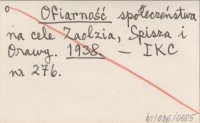 Ofiarność społeczeństwa
na cele Zaolzia, Spisza i
Orawy. 1938. — IKC
na 276.